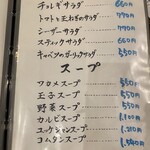 チョレギサラダ 660円
トマトと玉ねぎのサラダ 770円
シーザーサラダ 770円
スティックサラダ 660円
キャベツのガーリックサラダ 550円
スープ
ワカメスープ 550円
玉子スープ 550円
野菜スープ 550円
カルビスープ 1,100円
ユッケジャンスープ 1,200円
コムタンスープ